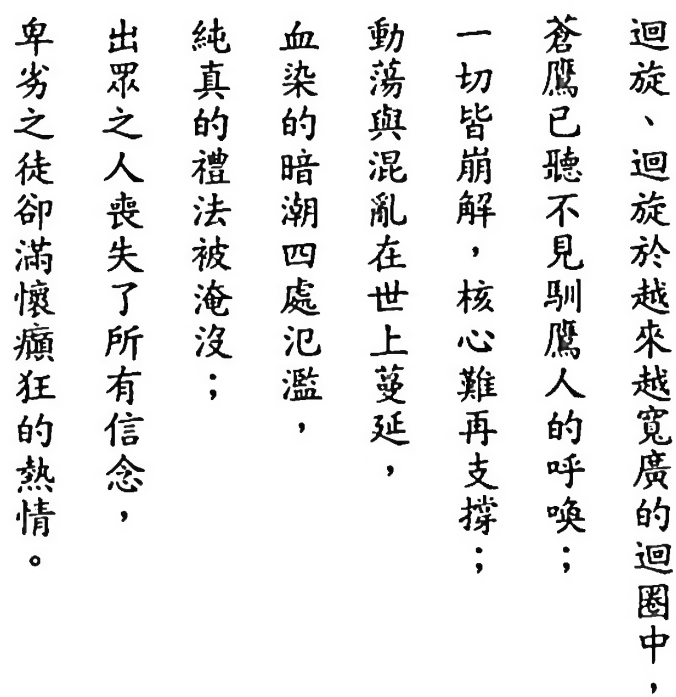 迴旋、迴旋於越來越寬廣的迴圈中，
蒼鷹已聽不見馴鷹人的呼喚；
一切皆崩解，核心難再支撐；
動蕩與混亂在世上蔓延，
血染的暗潮四處氾濫，
純真的禮法被淹沒；
出眾之人喪失了所有信念，
卑劣之徒卻滿懷癲狂的熱情。